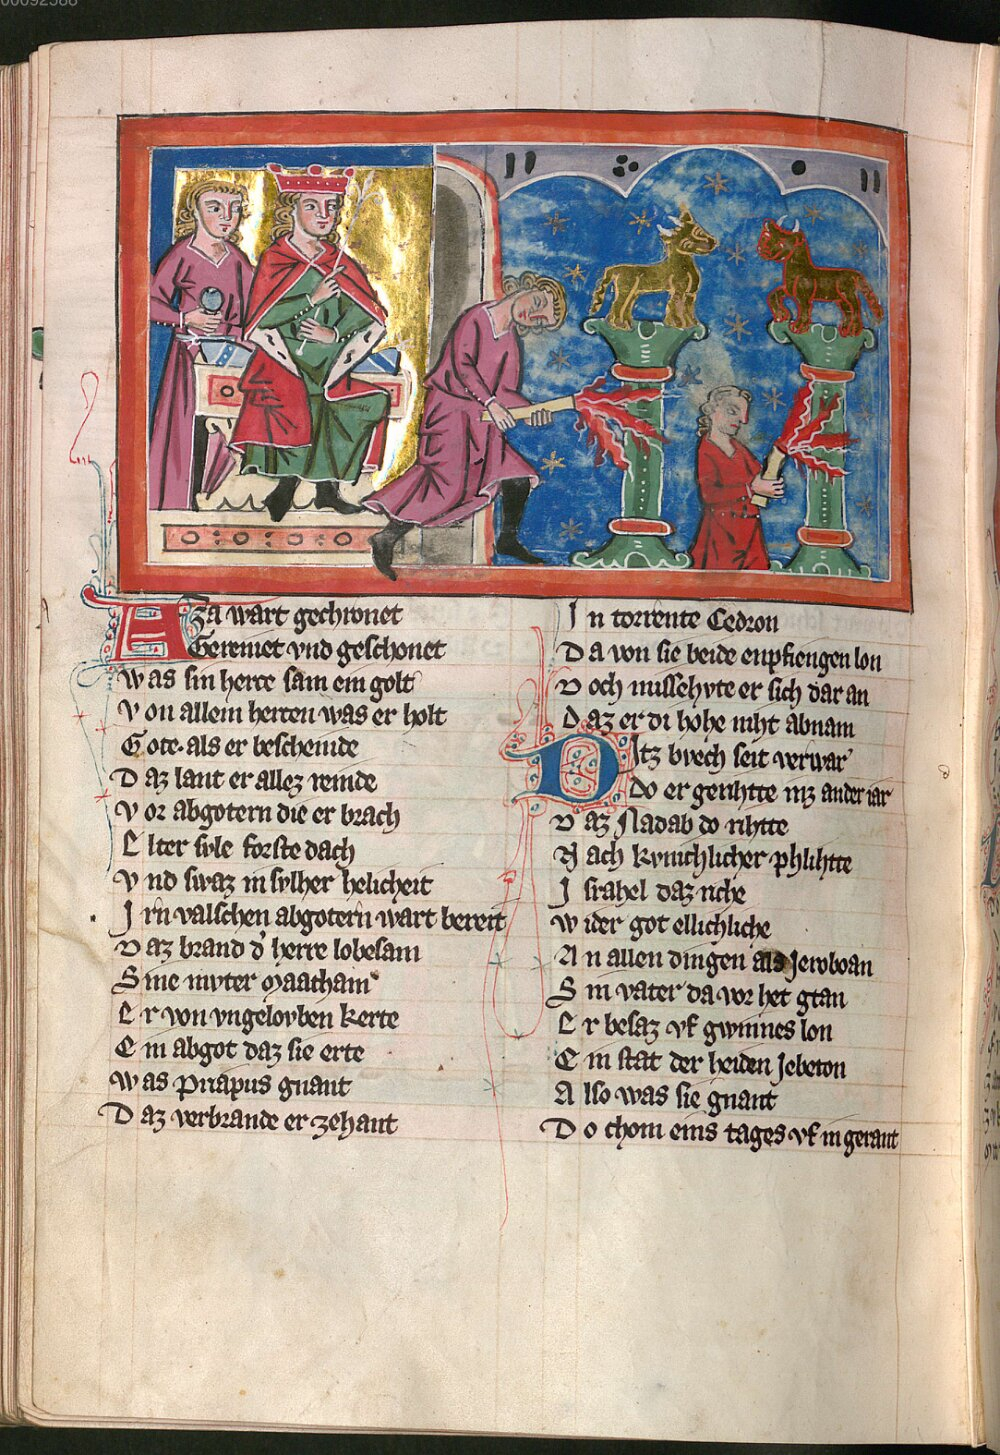 00092586
Aza wart gechronet
Geremet vnd geschonet
Was sin herce sam ein golt
Von allem hercen was er holt
Gote. als er bescheinde
Daz lant er allez reinde
Vor abgotern die er brach
Elter svle forste dach
Vnd swaz in sylher helicheit
Irn valschen abgotern wart bereit
Daz brand d' herre lobesam
Sine mvter Maacham
Er von vngelovben kerte
Ein abgot daz sie erte
Was Priapus gnant
Daz verbrande er zehant
In torrente Cedron
Da von sie beide enpfiengen lon
Doch missehvte er sich dar an
Daz er di hohe niht abnam
Ditz bvech seit verwar
Do er gerihtte inz ander iar
Daz Nadab do rihtte
Nach kvnichlicher phlihtte
Israhel daz riche
Wider got ellichliche
An allen dingen als Jeroboan
Sin vater da vor het gtan
Er besaz vf gwinnes lon
Ein stat der heiden Jebeton
Also was sie gnant
Do chom eins tages vf in gerant